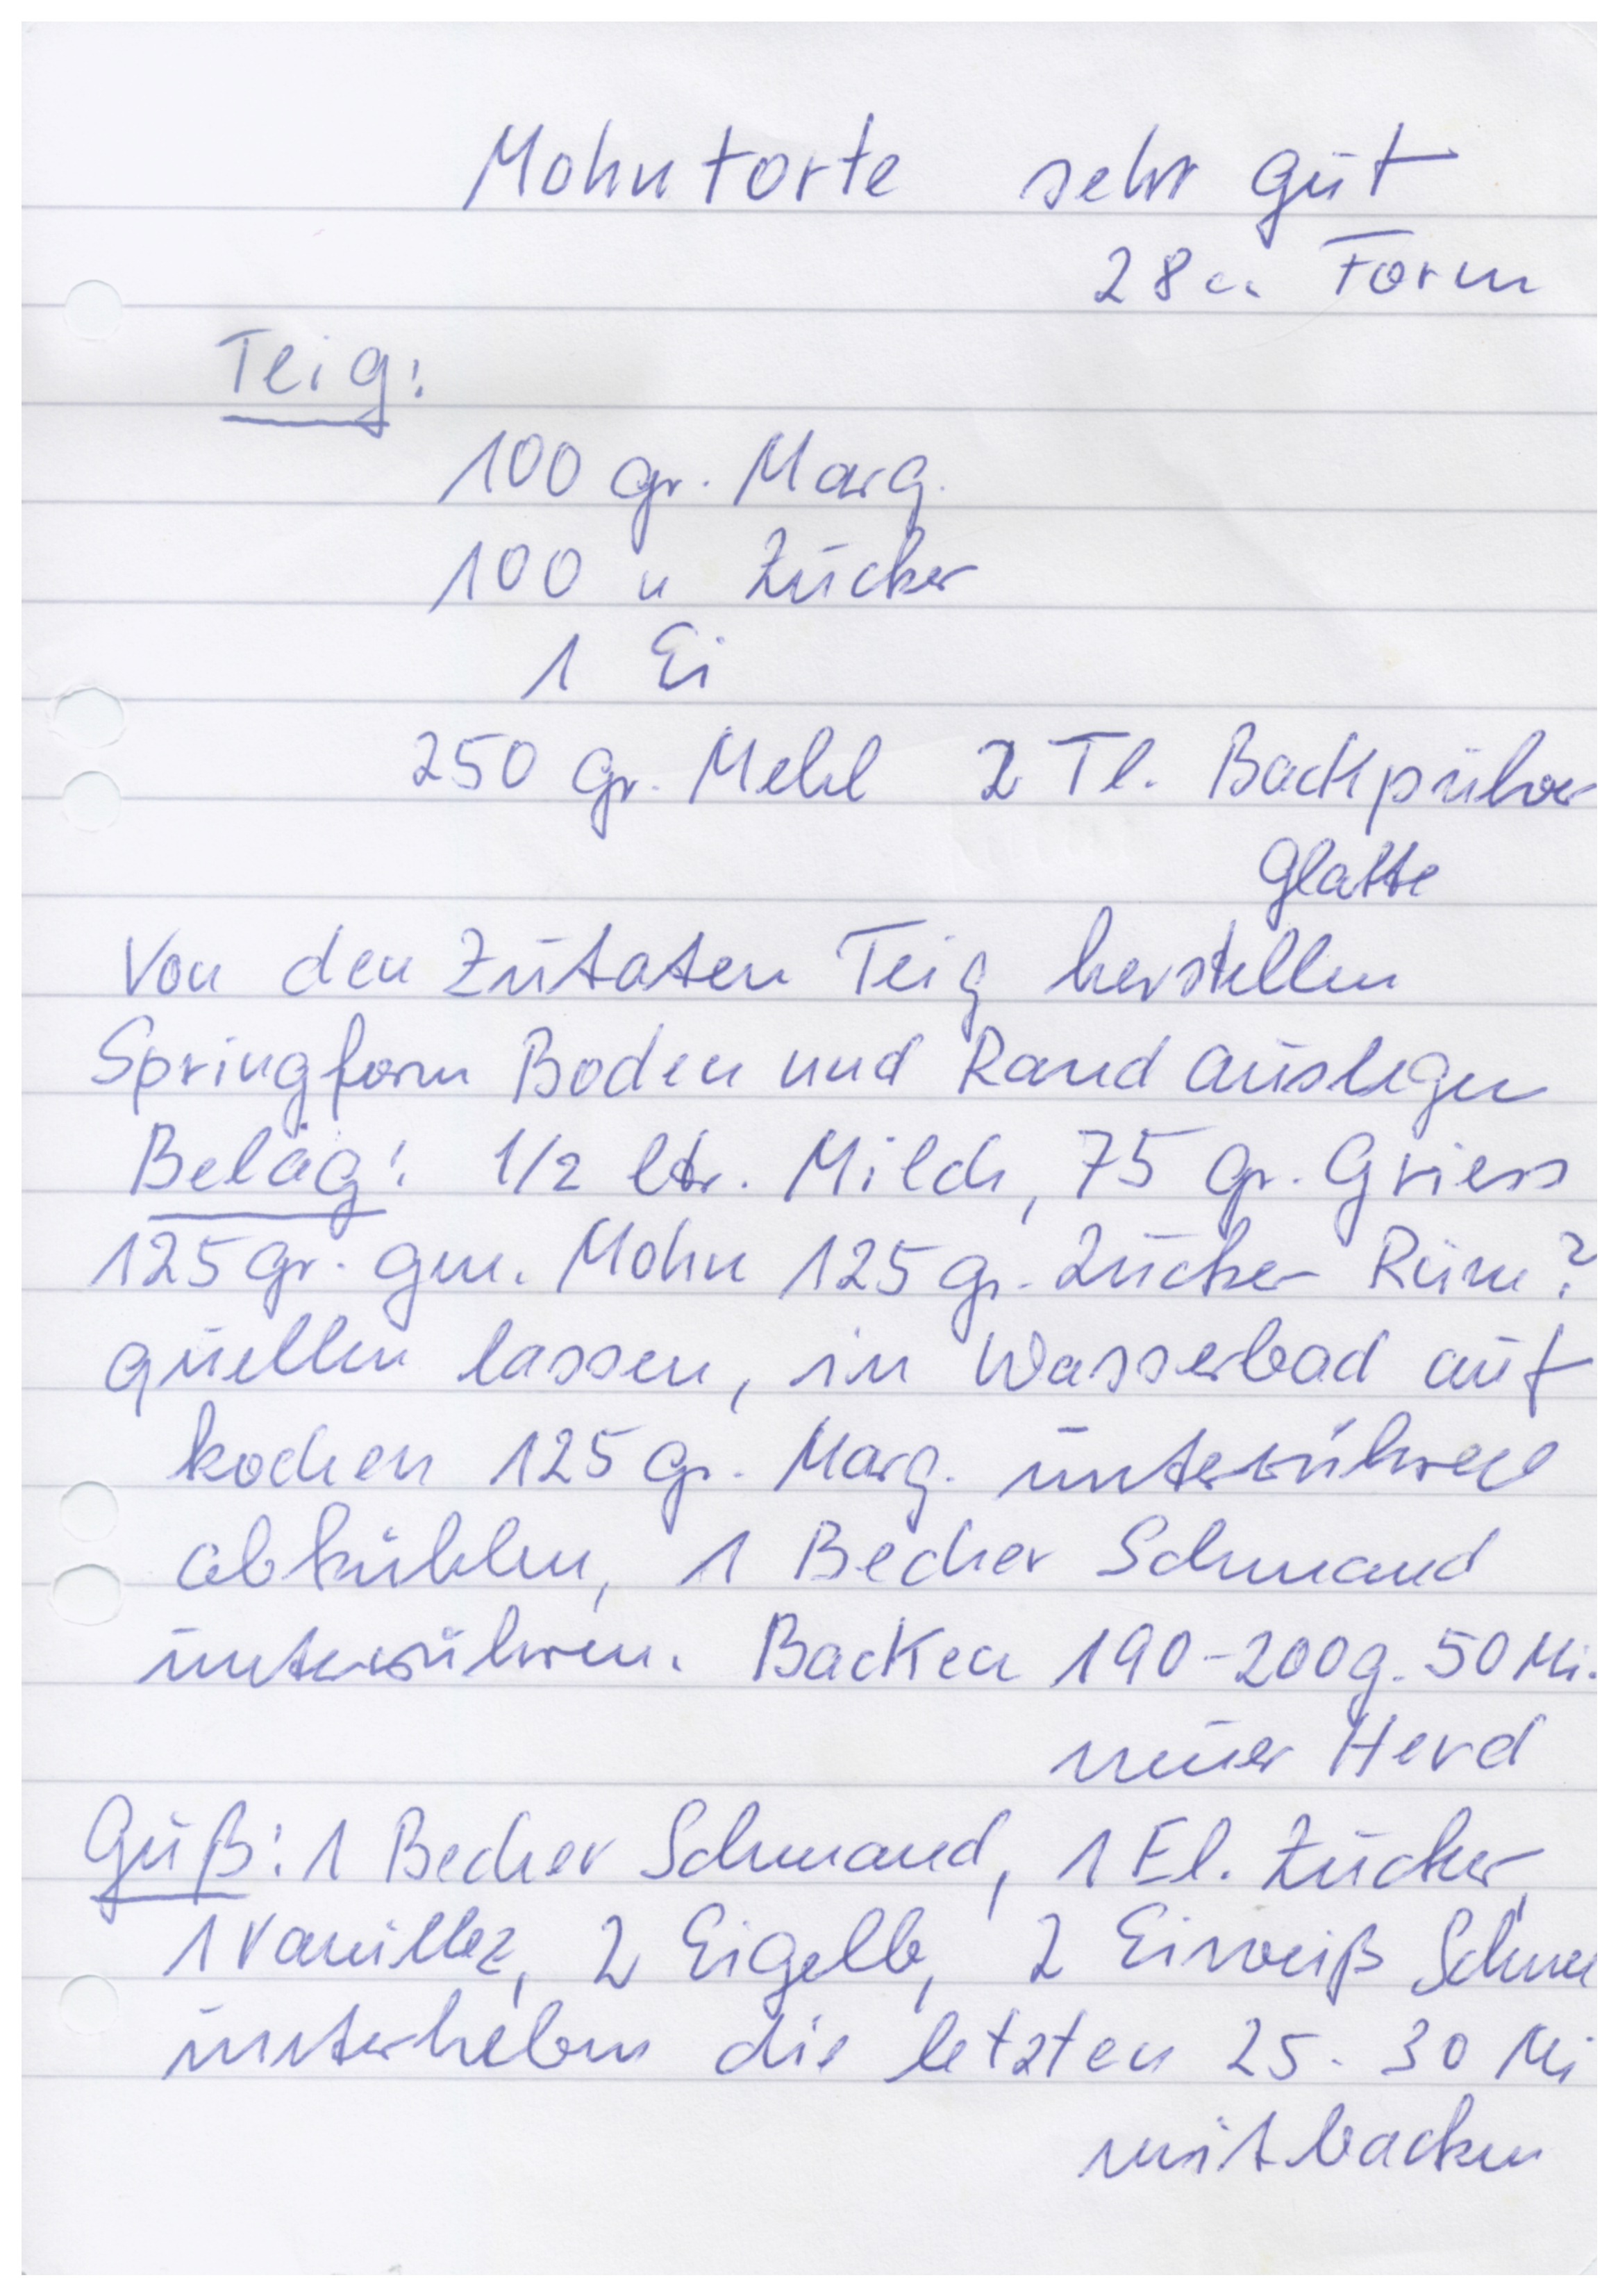 Mohntorte sehr gut
28cm Form
Teig:
100 gr. Marg.
100 " Zucker
1 Ei
250 gr. Mehl 2 Tl. Backpulver
Glatte
Von den Zutaten Teig herstellen
Springform Boden und Rand auslegen
Belag: 1/2 ltr. Milch, 75 gr. Griess
125 gr. gem. Mohn 125 gr. Zucker Rum?
quellen lassen, in Wasserbad auf
kochen 125 gr. Marg. unterrühren
abkühlen, 1 Becher Schmand
unterrühren. Backen 190-200g. 50 Mi.
neuer Herd
Guß: 1 Becher Schmand, 1 El. Zucker,
1 Vanillez, 2 Eigelb, 2 Eiweiß Schnee
unterheben die letzten 25-30 Mi
mitbacken